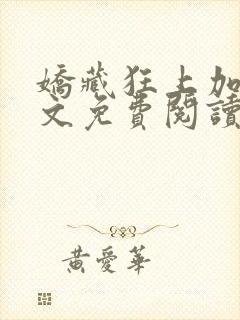 嬌藏狂上加
文免費閱讀
黃愛華